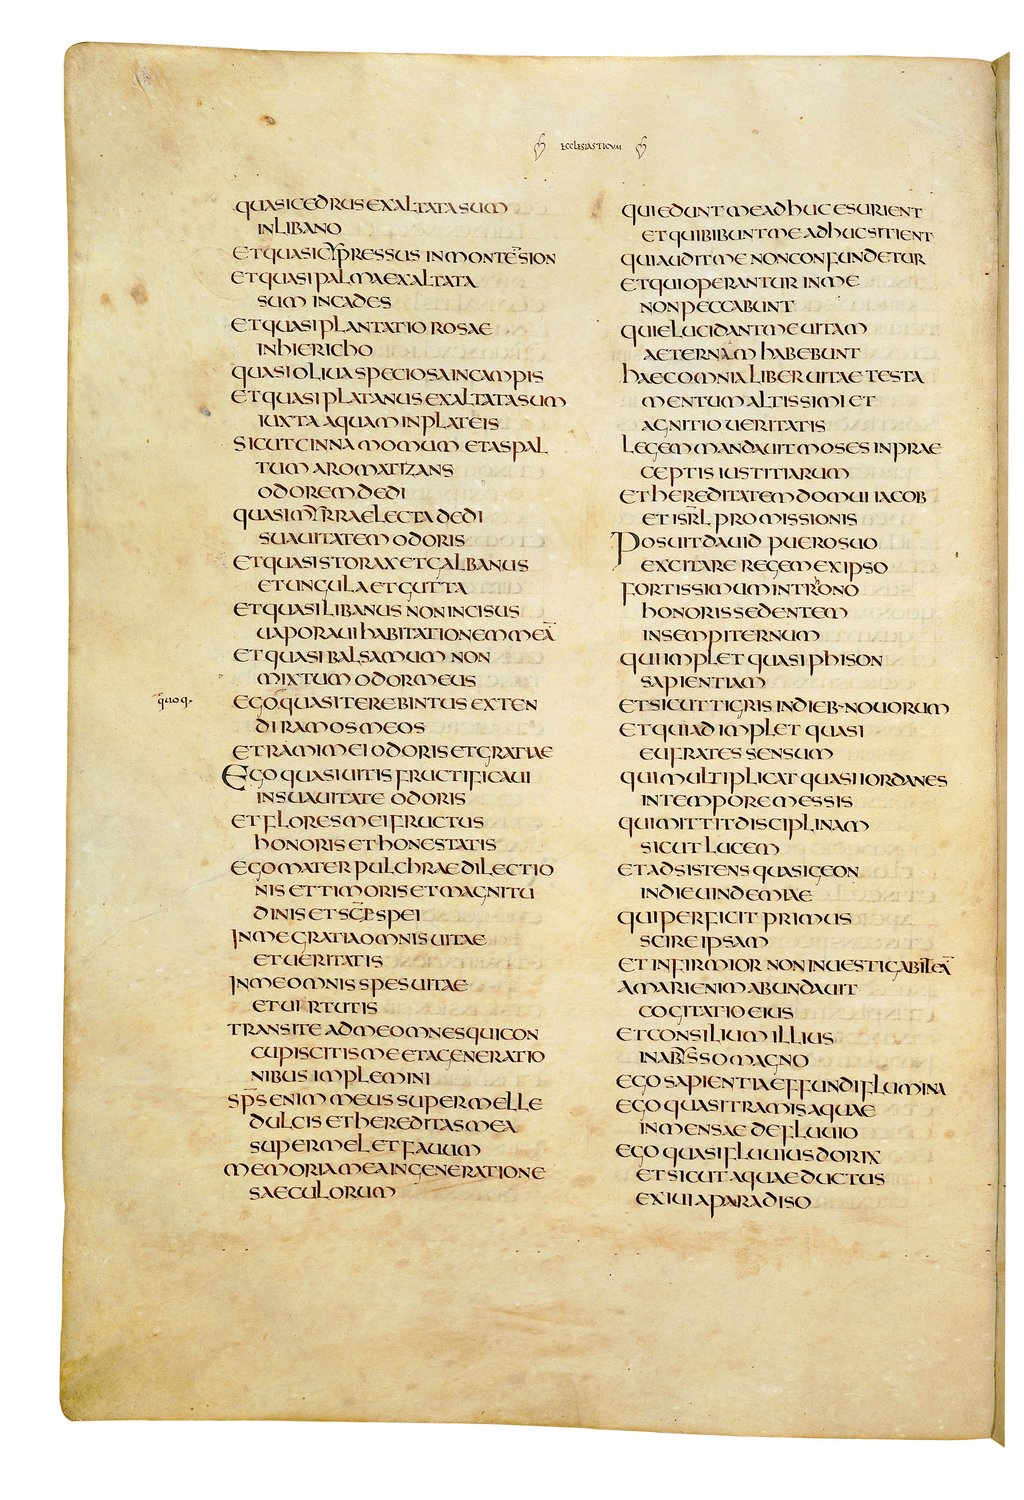 ECCLESIASTICUM
quasi cedrus exaltata sum
in libano
et quasi cypressus in monte sion
et quasi palma exaltata
sum in cades
et quasi plantatio rosae
in hiericho
quasi oliua speciosa in campis
et quasi platanus exaltata sum
iuxta aquam in plateis
sicut cinnamomum et aspal
tum aromatizans
odorem dedi
quasi myrra electa dedi
suauitatem odoris
et quasi storax et galbanus
et ungula et gutta
et quasi libanus non incisus
uaporaui habitationem meā
et quasi balsamum non
mixtum odor meus
quoq·
ego quasi terebintus exten
di ramos meos
et rami mei odoris et gratiae
Ego quasi uitis fructificaui
in suauitate odoris
et flores mei fructus
honoris et honestatis
ego mater pulchrae dilectio
nis et timoris et magnitu
dinis et scae spei
In me gratia omnis uitae
et ueritatis
In me omnis spes uitae
et uirtutis
transite ad me omnes qui con
cupiscitis me et a generatio
nibus implemini
sp̄s enim meus super melle
dulcis et hereditas mea
super mel et fauum
memoria mea in generatione
saeculorum
qui edunt me adhuc esurient
et qui bibunt me adhuc sitient
qui audit me non confundetur
et qui operantur in me
non peccabunt
qui elucidant me uitam
aeternam habebunt
haec omnia liber uitae testa
mentum altissimi et
agnitio ueritatis
Legem mandauit moses in prae
ceptis iustitiarum
et hereditatem domui iacob
et isrl promissionis
Posuit dauid puero suo
excitare regem ex ipso
fortissimum in throno
honoris sedentem
in sempiternum
qui implet quasi phison
sapientiam
et sicut tigris in dieb· nouorum
et qui adimplet quasi
eufrates sensum
qui multiplicat quasi iordanes
in tempore messis
qui mittit disciplinam
sicut lucem
et adsistens quasi geon
in die uindemiae
qui perficit primus
scire ipsam
et infirmior non inuestigabit eā
a mari enim abundauit
cogitatio eius
et consilium illius
in abysso magno
ego sapientia effundi flumina
ego quasi tramis aquae
inmensae de fluuio
ego quasi fluuius dorix
et sicut aquae ductus
exiui a paradiso